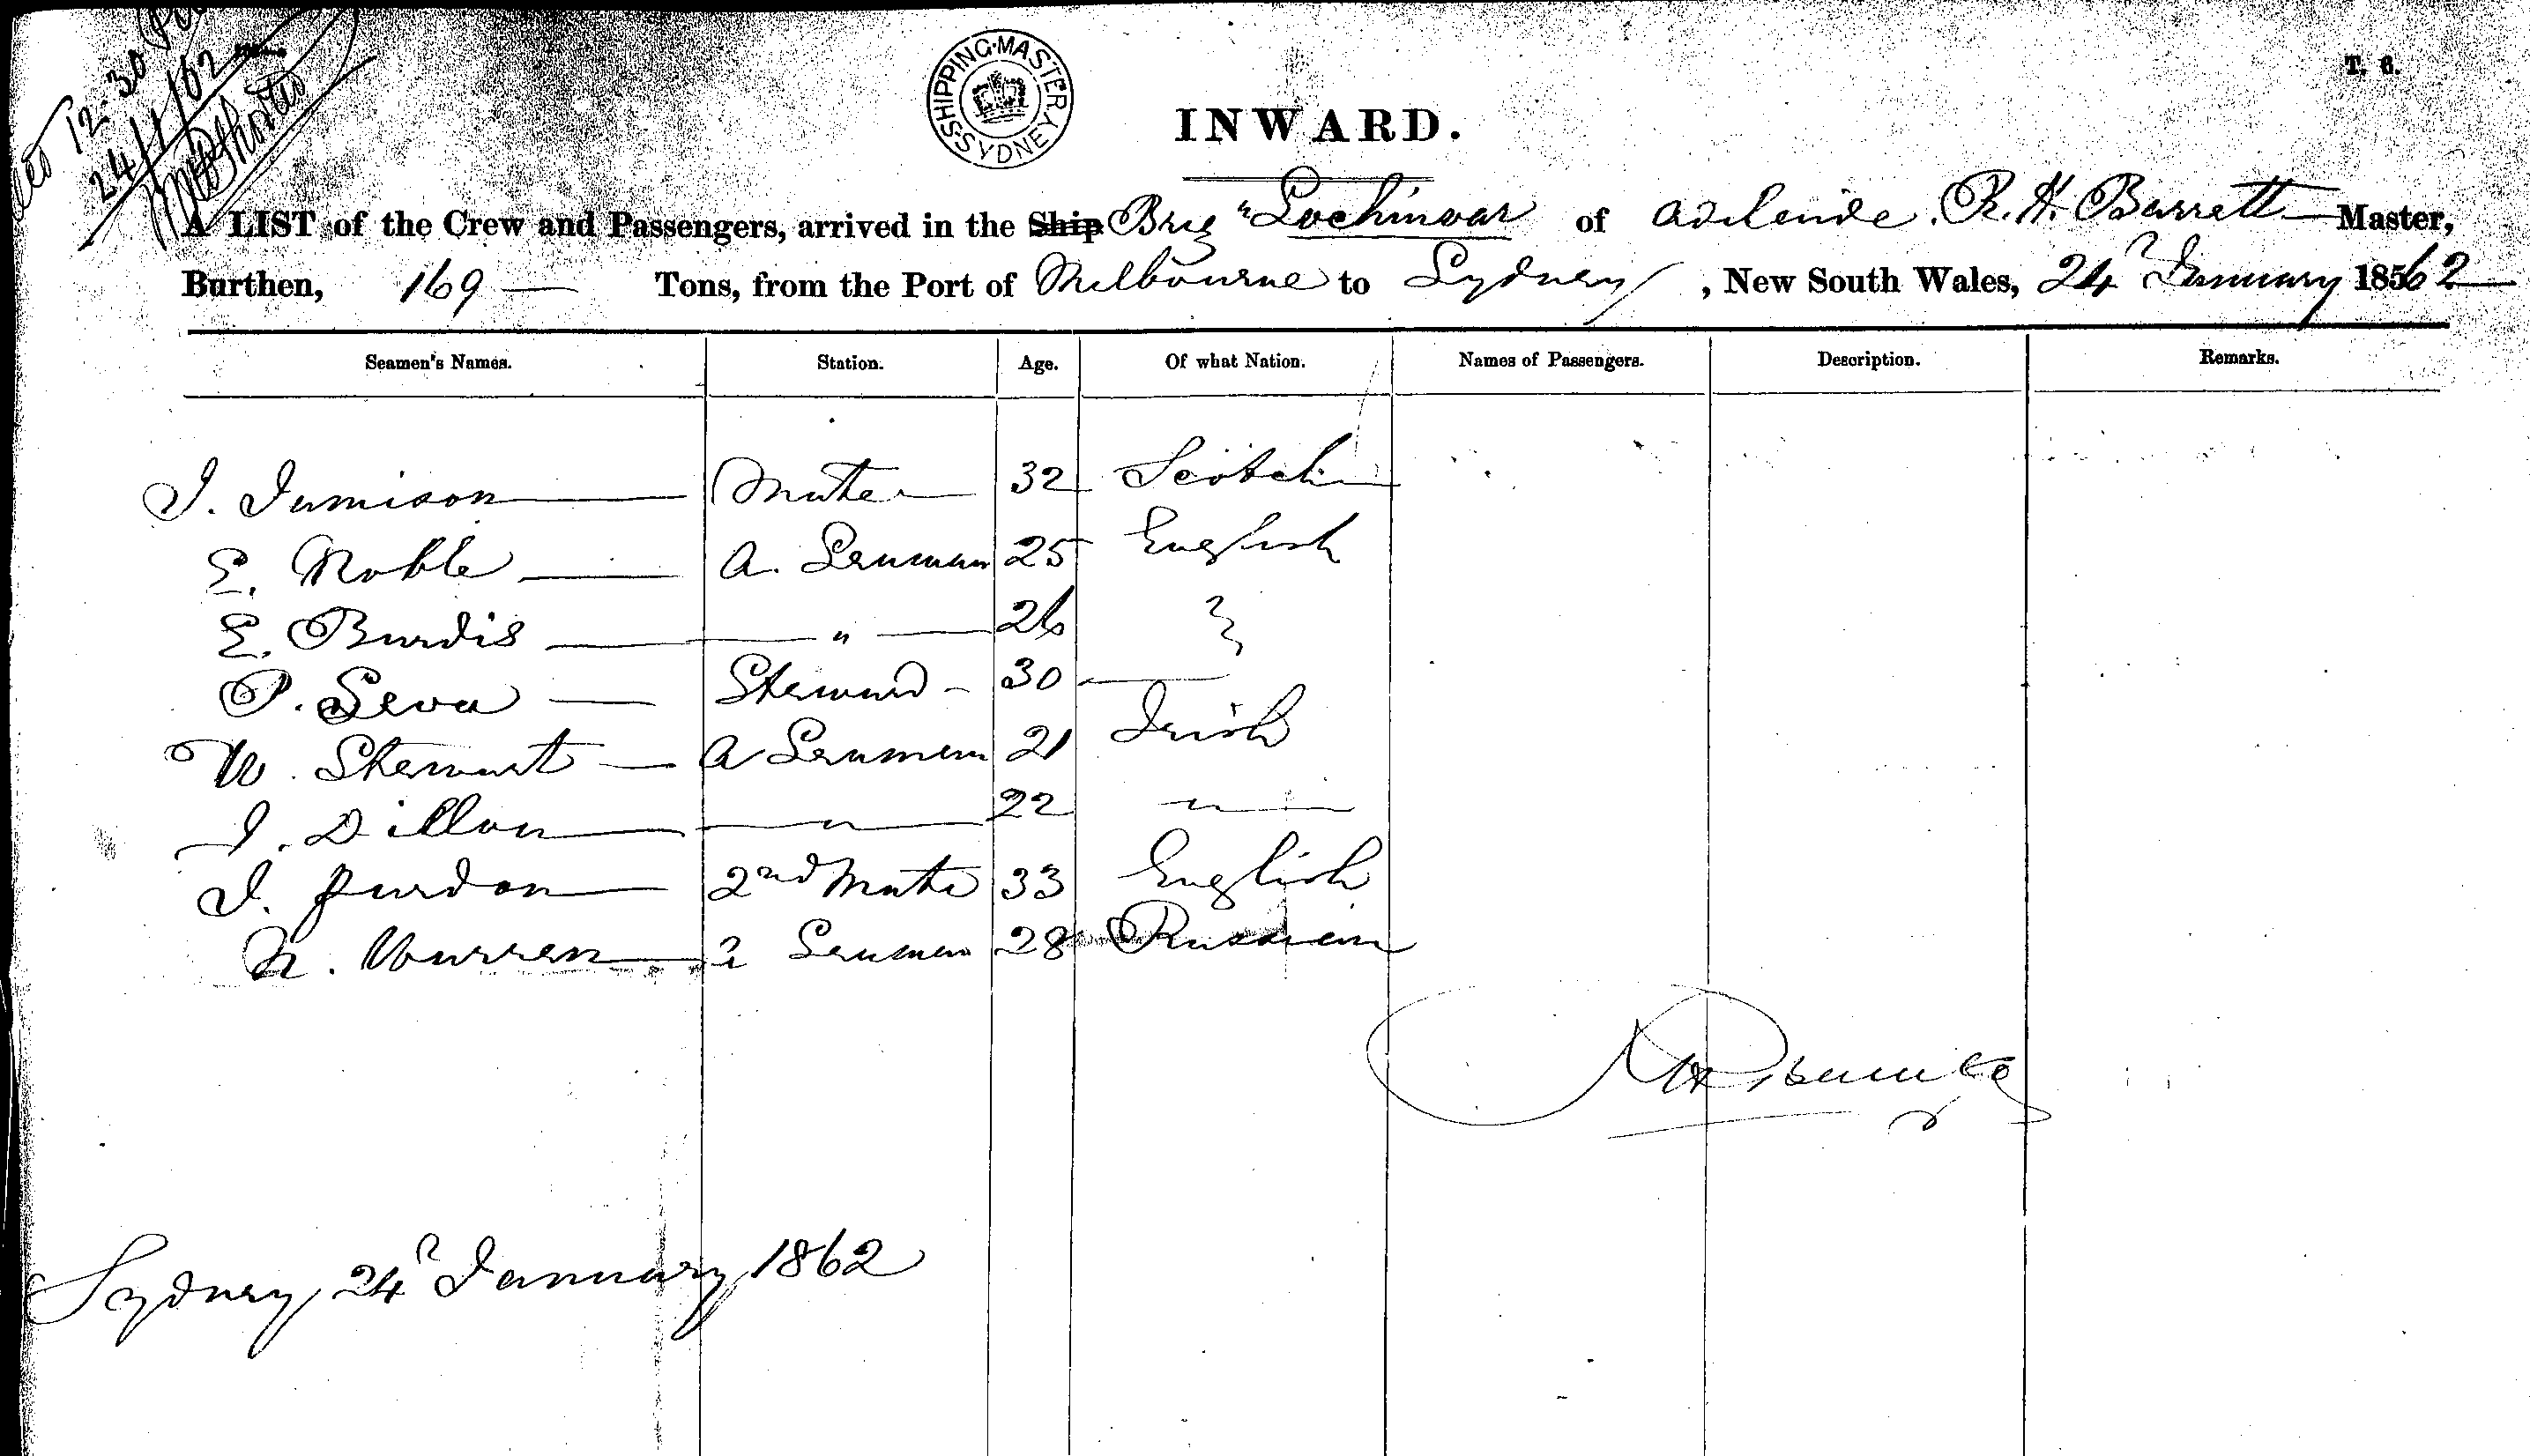 12.30
24/1/62
SHIPPING MASTER SYDNEY
T. 6.
INWARD.
A LIST of the Crew and Passengers, arrived in the Ship Brig "Lochinvar of Adelaide. R. H. Barrett Master,
Burthen, 169 Tons, from the Port of Melbourne to Sydney, New South Wales, 24 January 1862
Seamen's Names. Station. Age. Of what Nation. Names of Passengers. Description. Remarks.
J. Jamison Mate 32 Scotch
E. Noble A. Seaman 25 English
E. Burdis " 26 "
P. Seva Steward 30
W. Stewart A Seaman 21 Irish
J. Dillon " 22 "
J. Purdon 2nd Mate 33 English
N. Warren a Seaman 28 Russian
Sydney 24 January 1862